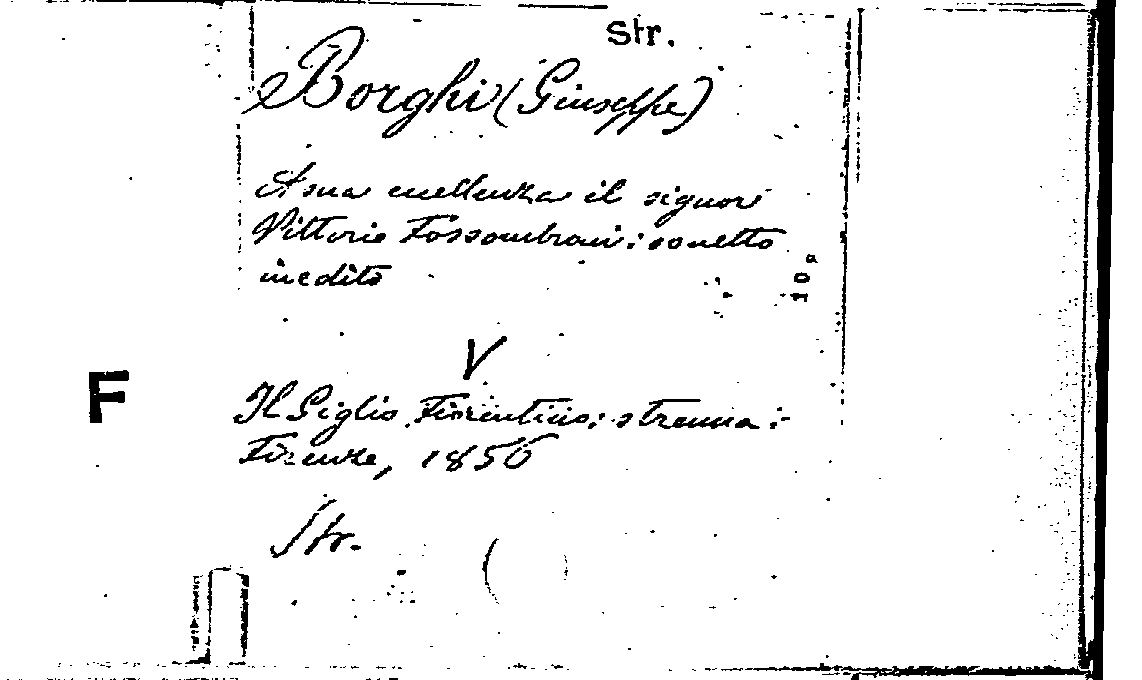 Str.
Borghi (Giuseppe)
A sua eccellenza il signore
Vittorio Fossombroni: sonetto
inedito
10a
V
F
Il Giglio Fiorentino: strenna:
Firenze, 1856
Str.